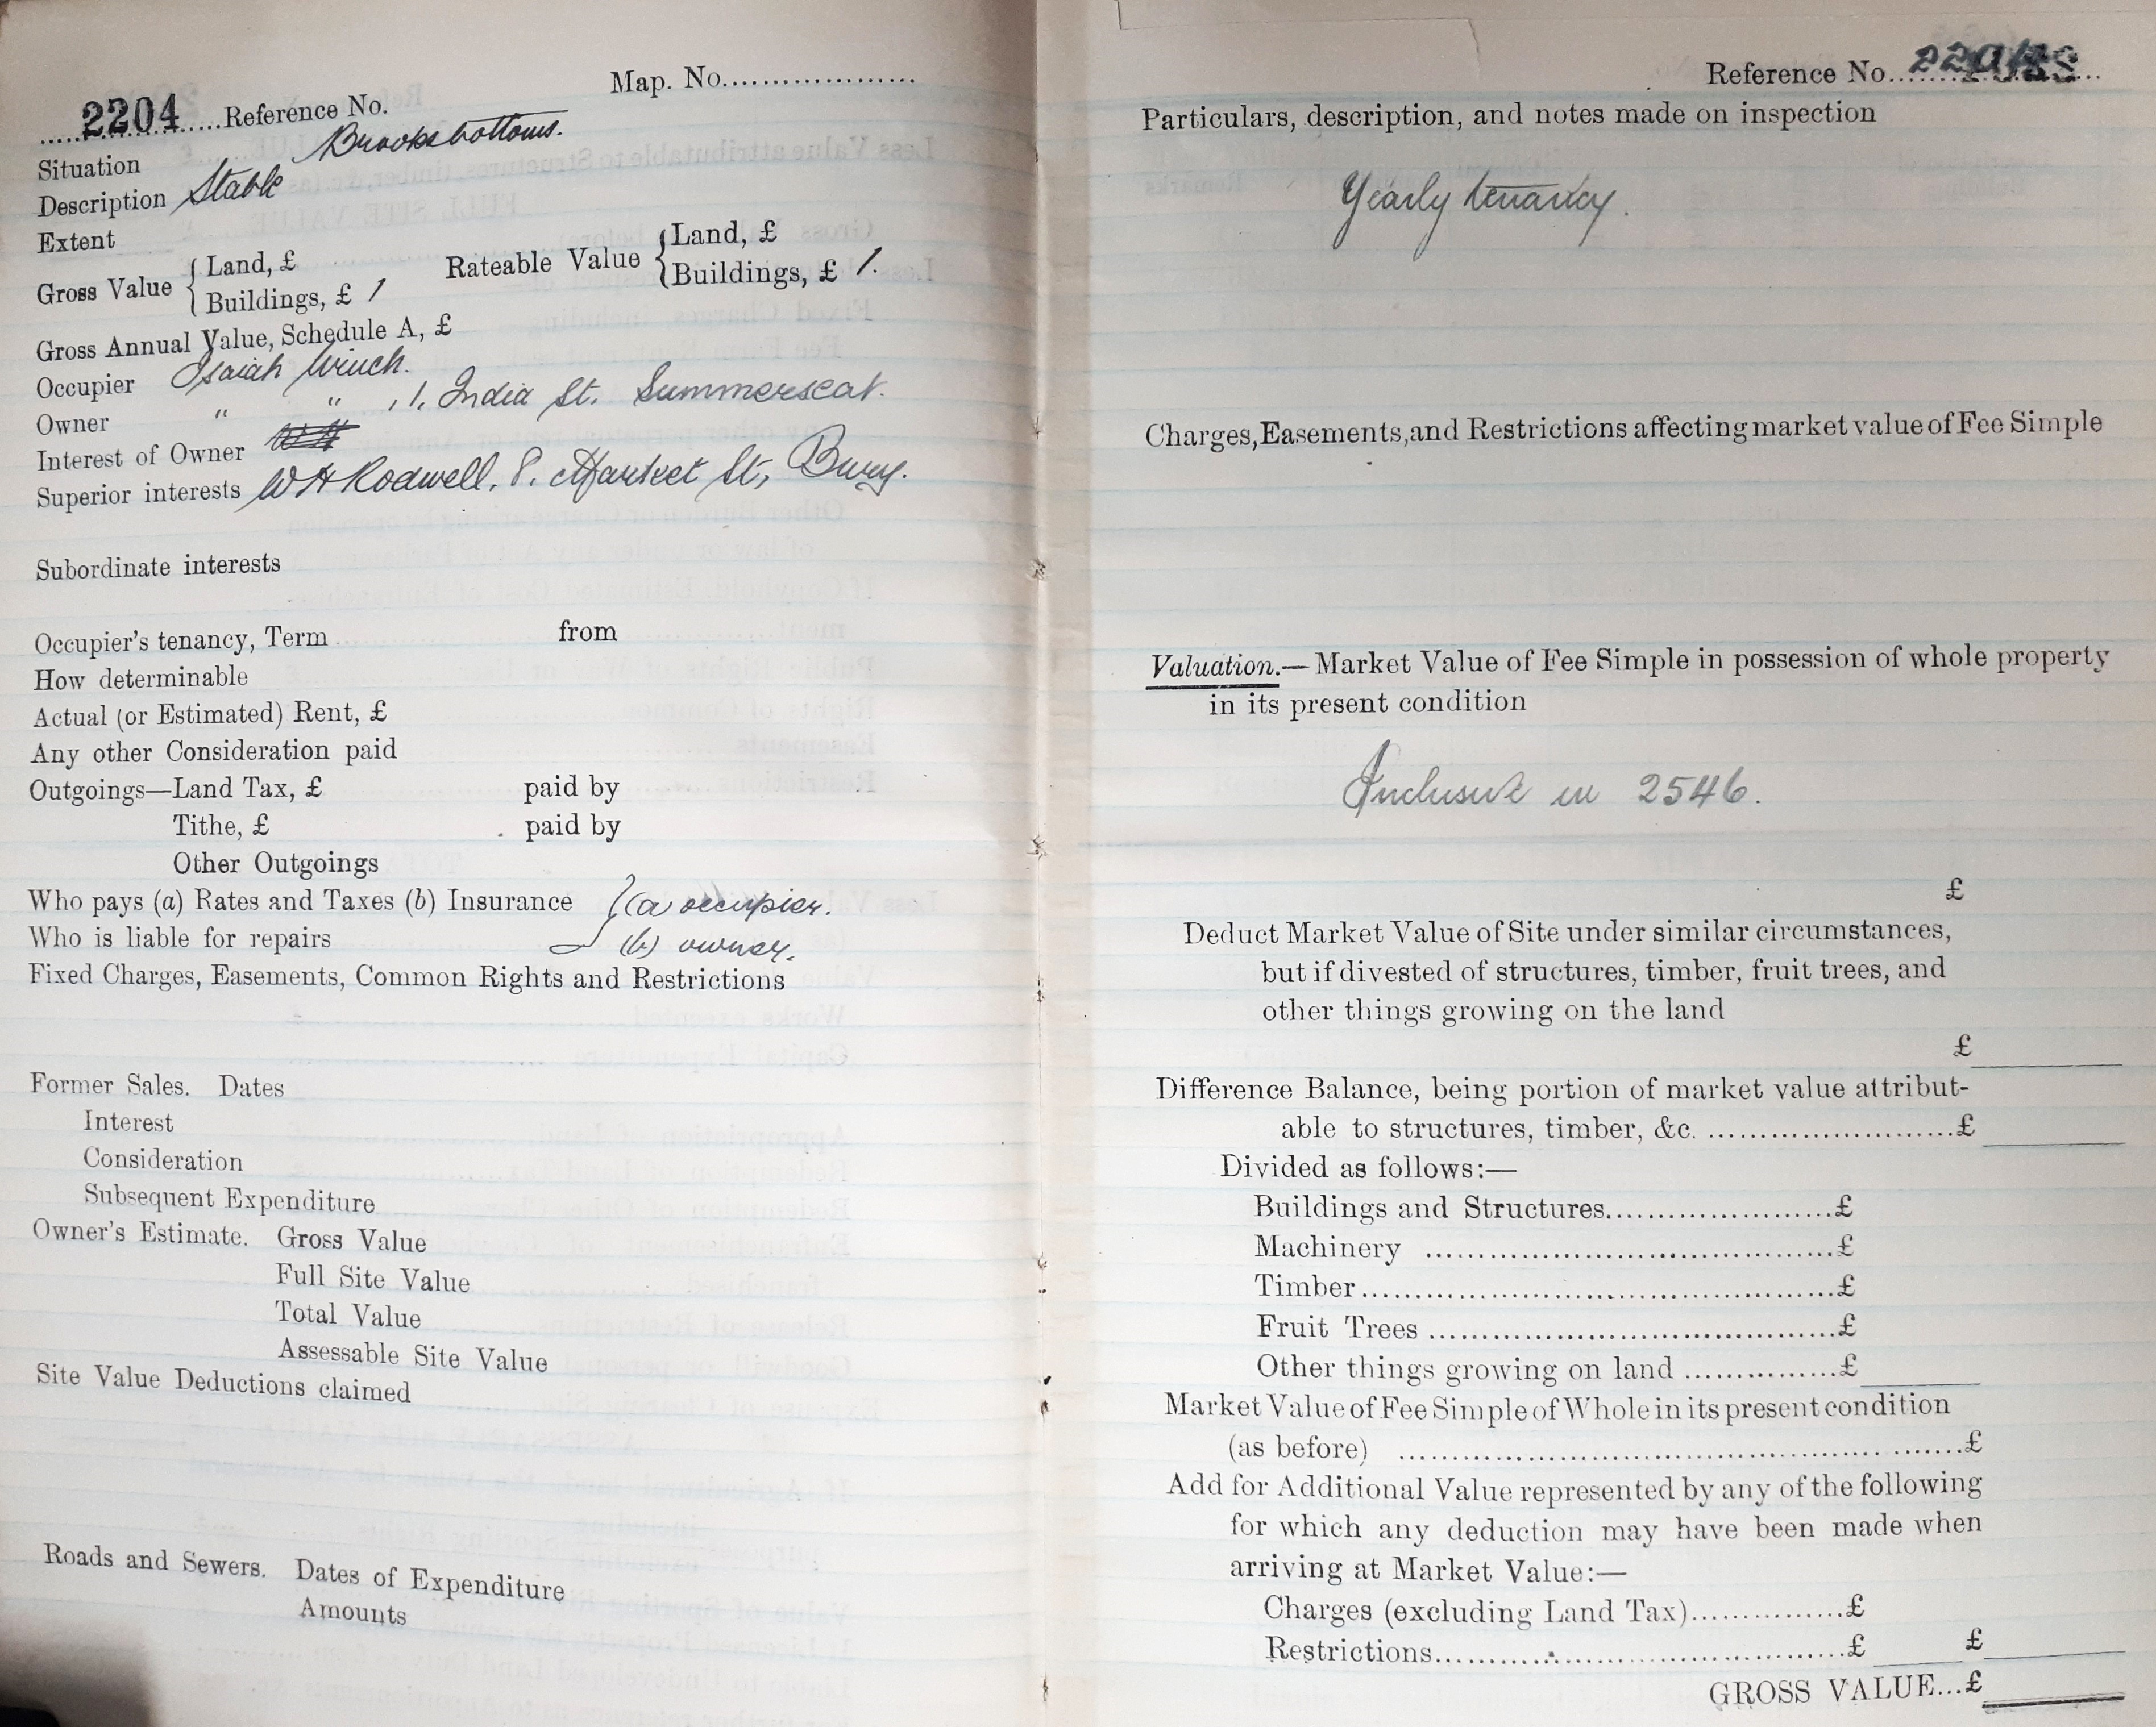 Map. No....................
2204 Reference No.
Situation Brooksbottoms.
Description Stable
Extent
Gross Value { Land, £
Buildings, £ 1
Rateable Value { Land, £
Buildings, £ 1.
Gross Annual Value, Schedule A, £
Occupier Isaiah Winch.
Owner " " , 1, India St. Summerseat.
Interest of Owner
Superior interests W H Rodwell, 8, Market St, Bury.
Subordinate interests
Occupier's tenancy, Term from
How determinable
Actual (or Estimated) Rent, £
Any other Consideration paid
Outgoings—Land Tax, £ paid by
Tithe, £ paid by
Other Outgoings
Who pays (a) Rates and Taxes (b) Insurance } (a occupier.
Who is liable for repairs (b) owner.
Fixed Charges, Easements, Common Rights and Restrictions
Former Sales. Dates
Interest
Consideration
Subsequent Expenditure
Owner's Estimate. Gross Value
Full Site Value
Total Value
Assessable Site Value
Site Value Deductions claimed
Roads and Sewers. Dates of Expenditure
Amounts
Reference No.
Particulars, description, and notes made on inspection
Yearly tenancy.
Charges, Easements, and Restrictions affecting market value of Fee Simple
Valuation.—Market Value of Fee Simple in possession of whole property
in its present condition
Inclusive in 2546.
£
Deduct Market Value of Site under similar circumstances,
but if divested of structures, timber, fruit trees, and
other things growing on the land
£
Difference Balance, being portion of market value attribut-
able to structures, timber, &c. ..........................£
Divided as follows:—
Buildings and Structures......................£
Machinery ........................................£
Timber..............................................£
Fruit Trees ........................................£
Other things growing on land ...............£
Market Value of Fee Simple of Whole in its present condition
(as before) ........................................................£
Add for Additional Value represented by any of the following
for which any deduction may have been made when
arriving at Market Value:—
Charges (excluding Land Tax)...............£
Restrictions........................................£ £
GROSS VALUE...£